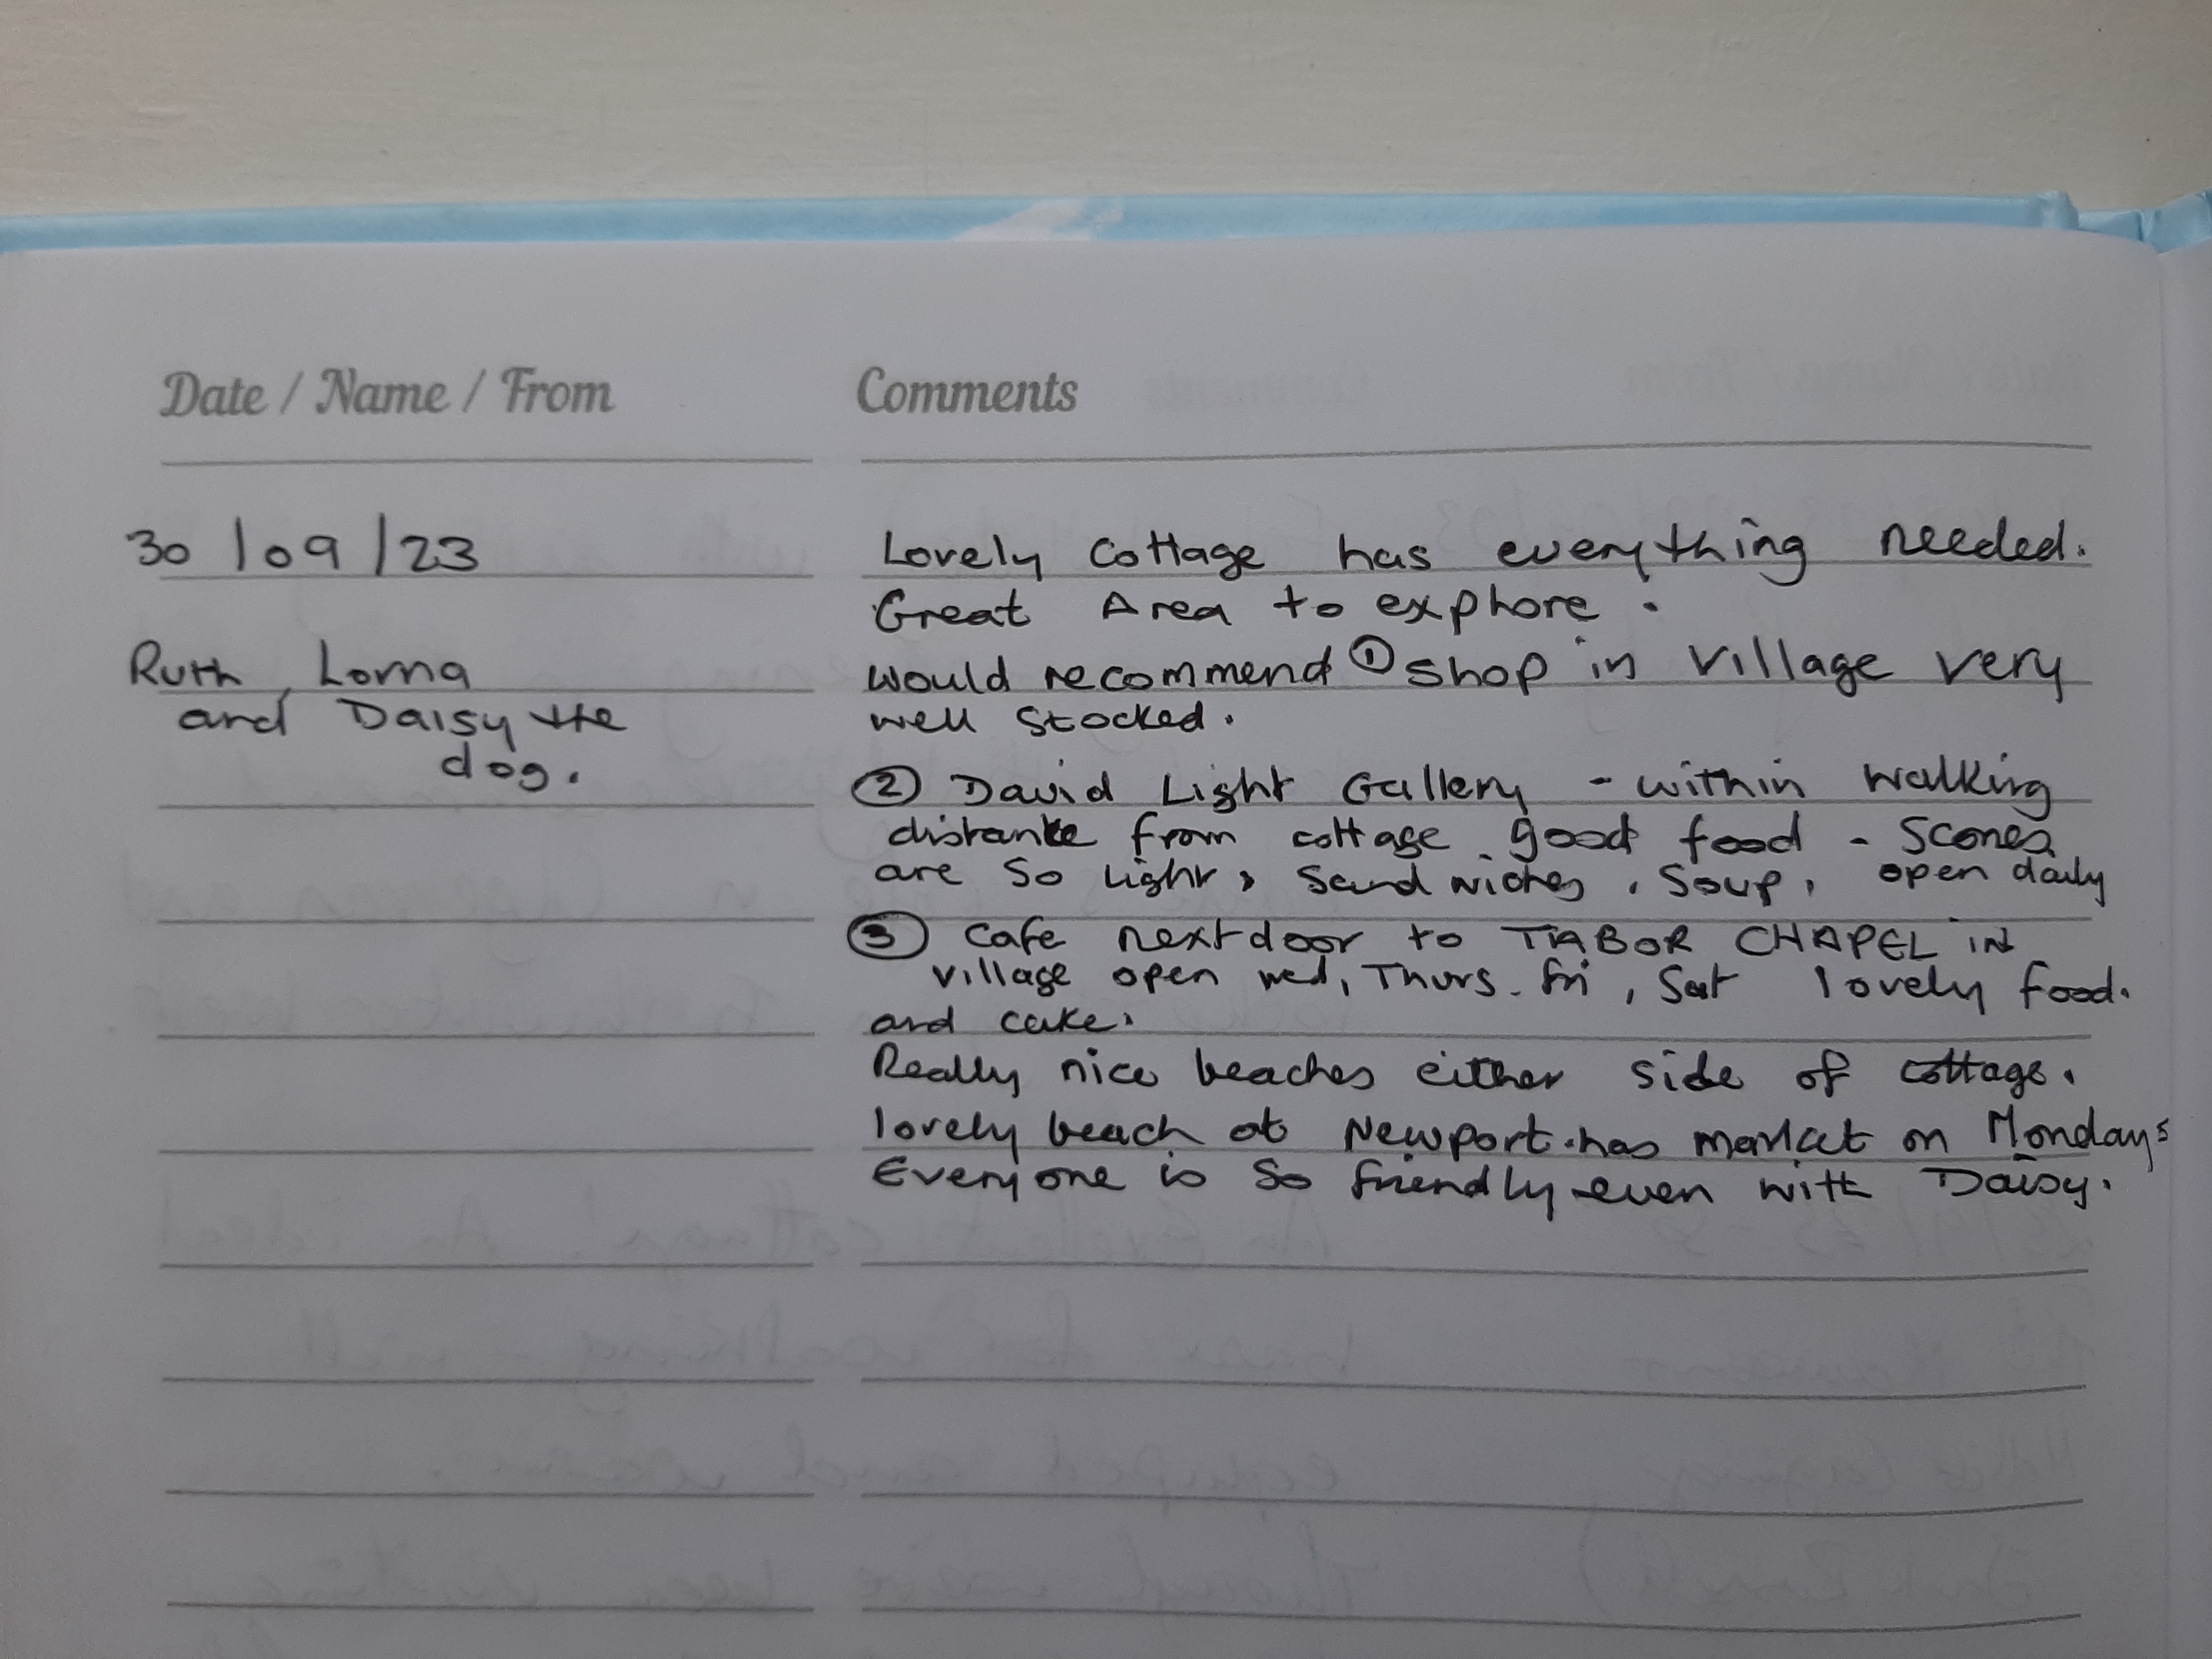 Date / Name / From
Comments
30/09/23
Ruth, Lorna
and Daisy the
dog.
Lovely Cottage has everything needed.
Great Area to exphore.
would recommend ① shop in village very
well stocked.
② David Light Gallery - within walking
distance from cottage good food - Scones
are so light, sandwiches, soup, open daily
③ Cafe nextdoor to TABOR CHAPEL in
village open wed, Thurs. fri, Sat lovely food.
and cake.
Really nice beaches either side of cottage.
lovely beach at Newport. has market on Mondays
Everyone is so friendly even with Daisy.